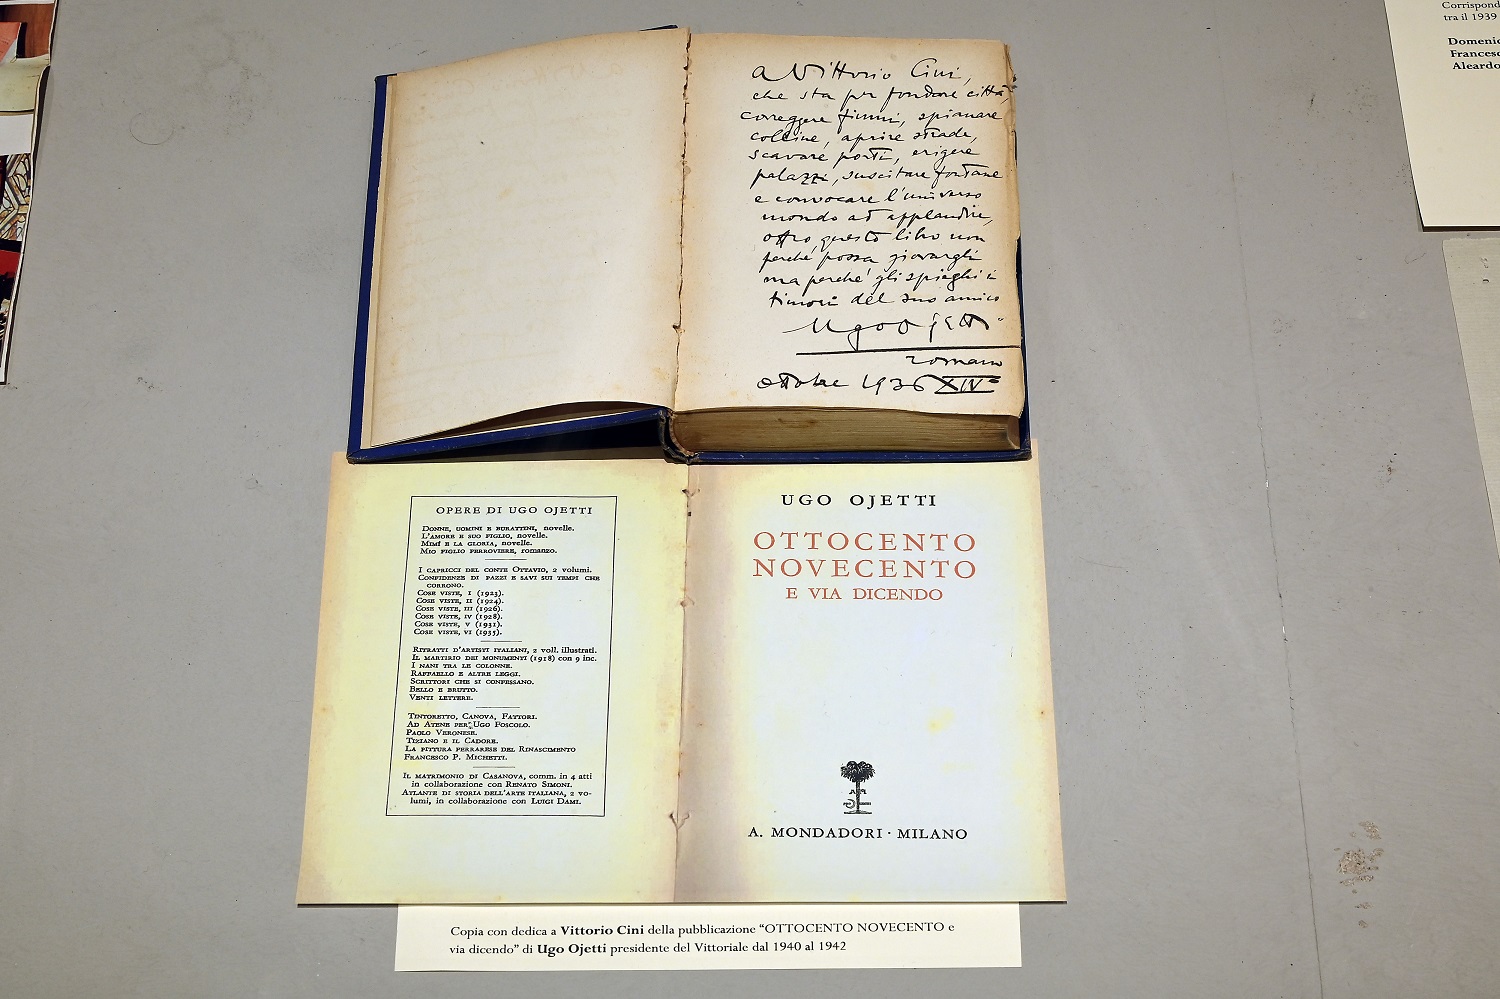 a Vittorio Cini,
che sta per fondare città,
correggere fiumi, spianare
colline, aprire strade,
scavare porti, erigere
palazzi, suscitare fontane
e convocare l'universo
mondo ad applaudire,
offro questo libro non
perché possa giovargli
ma perché gli spieghi i
timori del suo amico
Ugo Ojetti
romano
ottobre 1936 XIV°
OPERE DI UGO OJETTI
DONNE, UOMINI E BURATTINI, novelle.
L'AMORE E SUO FIGLIO, novelle.
MIMÍ E LA GLORIA, novelle.
MIO FIGLIO FERROVIERE, romanzo.
I CAPRICCI DEL CONTE OTTAVIO, 2 volumi.
CONFIDENZE DI PAZZI E SAVI SUI TEMPI CHE
CORRONO.
COSE VISTE, I (1923).
COSE VISTE, II (1924).
COSE VISTE, III (1926).
COSE VISTE, IV (1928).
COSE VISTE, V (1931).
COSE VISTE, VI (1935).
RITRATTI D'ARTISTI ITALIANI, 2 voll. illustrati.
IL MARTIRIO DEI MONUMENTI (1918) con 9 inc.
I NANI TRA LE COLONNE.
RAFFAELLO E ALTRE LEGGI.
SCRITTORI CHE SI CONFESSANO.
BELLO E BRUTTO.
VENTI LETTERE.
TINTORETTO, CANOVA, FATTORI.
AD ATENE PER UGO FOSCOLO.
PAOLO VERONESE.
TIZIANO E IL CADORE.
LA PITTURA FERRARESE DEL RINASCIMENTO
FRANCESCO P. MICHETTI.
IL MATRIMONIO DI CASANOVA, comm. in 4 atti
in collaborazione con RENATO SIMONI.
ATLANTE DI STORIA DELL'ARTE ITALIANA, 2 vo-
lumi, in collaborazione con LUIGI DAMI.
UGO OJETTI
OTTOCENTO
NOVECENTO
E VIA DICENDO
A. MONDADORI · MILANO
Copia con dedica a Vittorio Cini della pubblicazione “OTTOCENTO NOVECENTO e
via dicendo” di Ugo Ojetti presidente del Vittoriale dal 1940 al 1942
tra il 1939